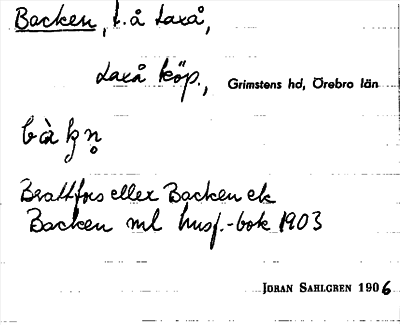 Backen, t. å Laxå,
Laxå köp., Grimstens hd, Örebro län
bàkn̥
Brattfors eller Backen ek
Backen ml husf.-bok 1903
JOHAN SAHLGREN 1906